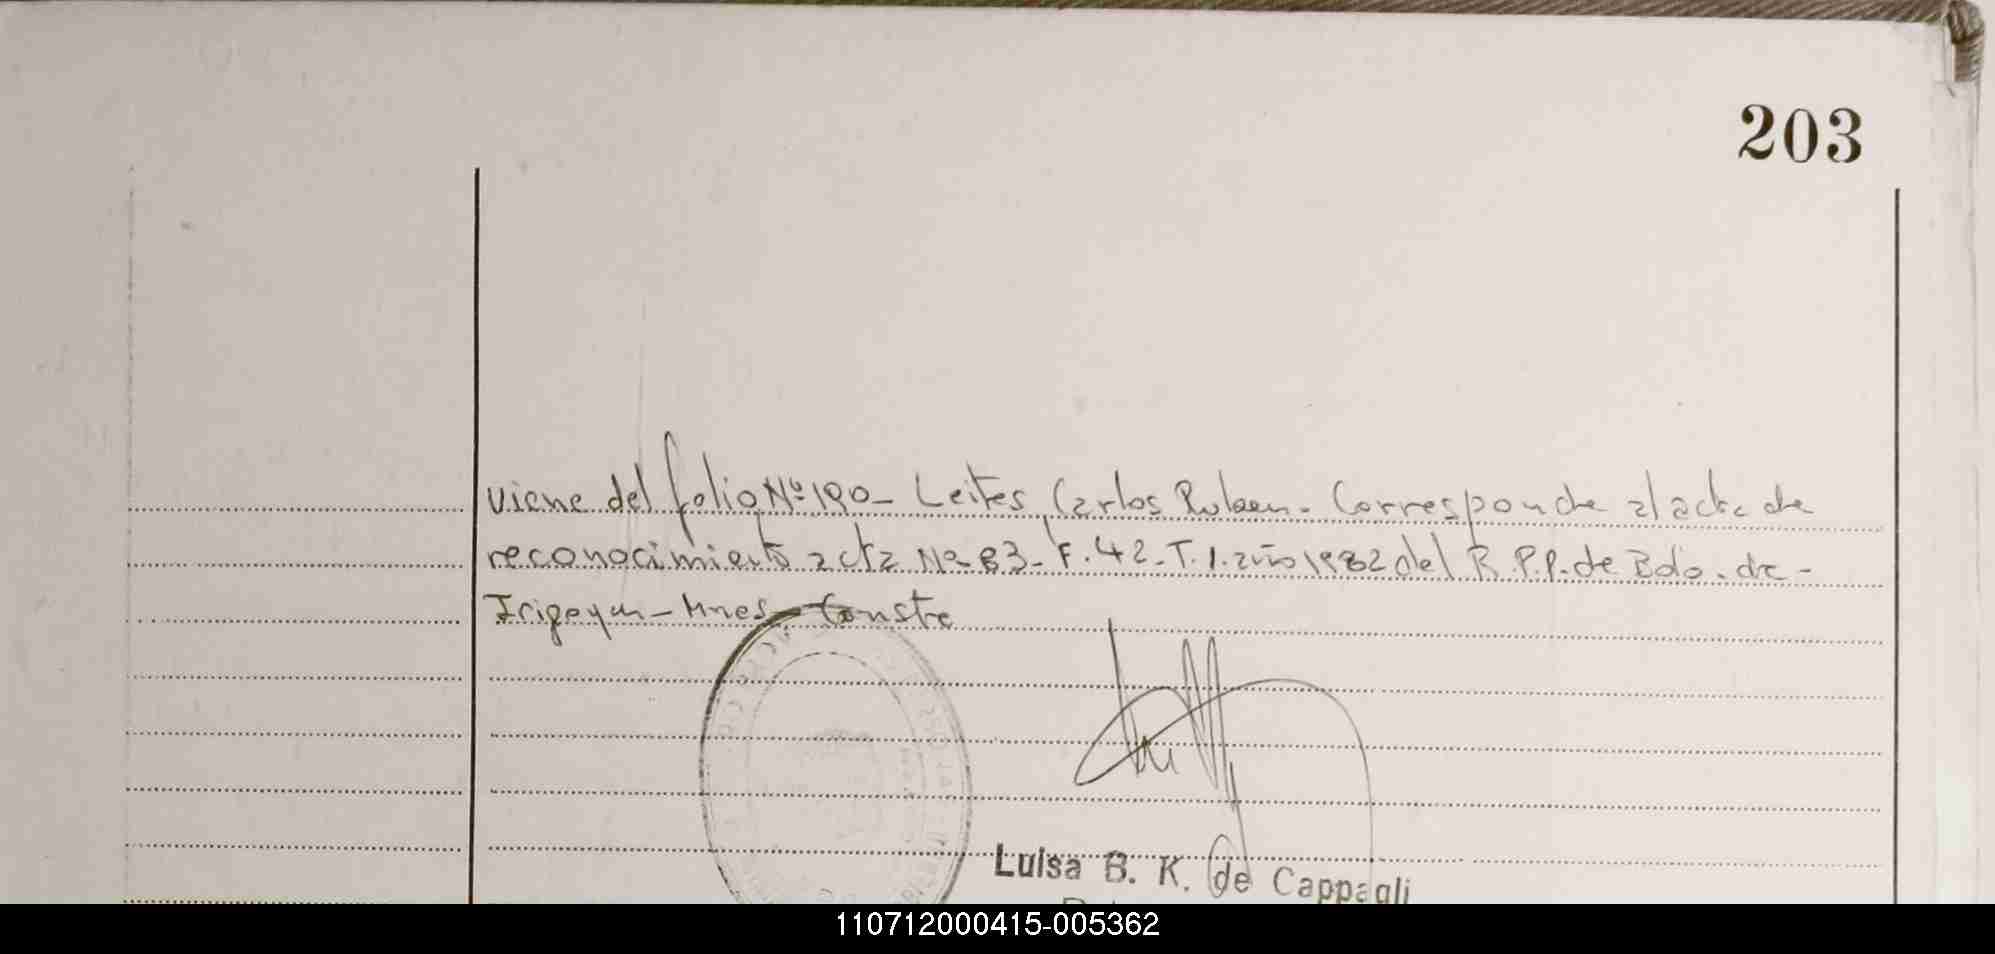 203
Viene del folio Nº 190 - Leites, Carlos Ruben - Corresponde al acta de
reconocimiento acta Nº 83 - F. 42 - T. 1. año 1982 del R. P. P. de Bdo. de -
Irigoyen - Mnes. Conste
Luisa B. K. de Cappagli
110712000415-005362